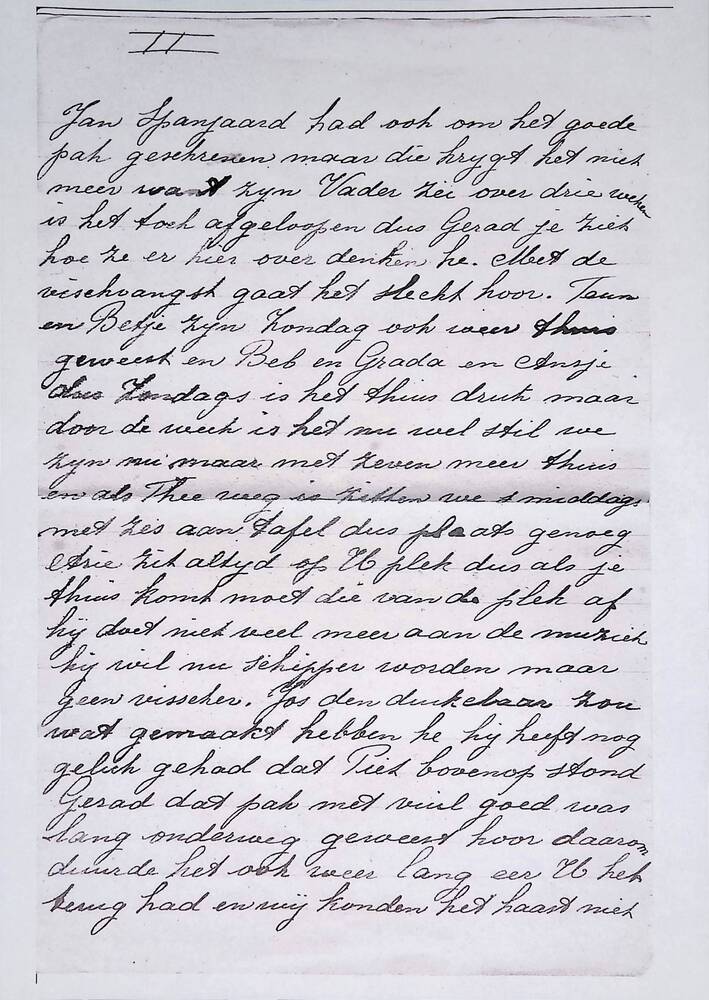 II
Jan Spanjaard had ook om het goede
pak geschreven maar die krygt het niet
meer want zyn Vader zei over drie weken
is het toch afgeloopen dus Gerad je ziet
hoe ze er hier over denken he. Met de
vischvangst gaat het slecht hoor. Teun
en Betje zyn Zondag ook weer thuis
geweest en Beb en Grada en Ansje
dus Zondags is het thuis druk maar
door de week is het nu wel stil we
zyn nu maar met zeven meer thuis
en als Thee weg is zitten we s middags
met zes aan tafel dus plaats genoeg
Arie zit altyd op U plek dus als je
thuis komt moet die van de plek af
hij doet niet veel meer aan de muziek
hij wil nu schipper worden maar
geen visscher. Jos den duikelaar zou
wat gemaakt hebben he hij heeft nog
geluk gehad dat Piet bovenop stond
Gerad dat pak met vuil goed was
lang onderweg geweest hoor daarom
duurde het ook weer lang eer U het
terug had en wij konden het haast niet